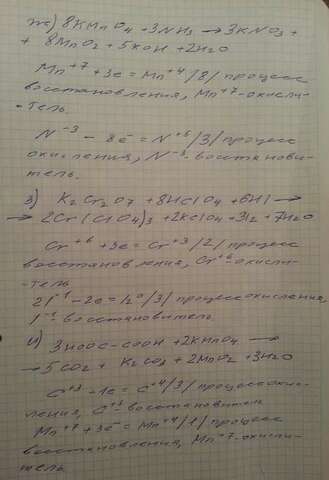 ж) 8KMnO4 + 3NH3 → 3KNO3 +
+ 8MnO2 + 5KOH + 2H2O
Mn+7 + 3e = Mn+4 /8/ процесс
восстановления, Mn+7 - окисли-
-тель.
N-3 - 8ē = N+5 /3/ процесс
окисления, N-3 - восстанови-
тель.
з) K2Cr2O7 + 8HClO4 + 6HI →
→ 2Cr(ClO4)3 + 2KClO4 + 3I2 + 7H2O
Cr+6 + 3e = Cr+3 /2/ процесс
восстановления, Cr+6 - окисли-
-тель
2I-1 - 2e = I2o /3/ процесс окисления,
I-1 - восстановитель.
и) 3HOOC-COOH + 2KMnO4 →
→ 5CO2 + K2CO3 + 2MnO2 + 3H2O
C+3 - 1e = C+4 /3/ процесс окис-
ления, C+3 - восстановител
Mn+7 + 3ē = Mn+4 /1/ процесс
восстановления, Mn+7 - окисли-
тель.